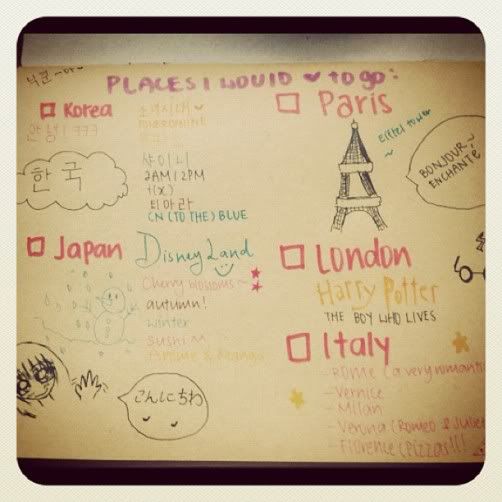 PLACES I WOULD ♥ to go:
Korea
안녕! ㅋㅋㅋ
한국
소녀시대 ♥
샤이니
2AM 2PM
f(x)
티아라
CN (TO THE) BLUE
Japan
Disney Land
Cherry blossoms ~
autumn!
winter
sushi
Anime & Manga
こんにちわ
Paris
Eiffel tower
~
BONJOUR~
ENCHANTÉ
LONDON
Harry Potter
THE BOY WHO LIVES
Italy
- Rome (a very romantic
- Vernice
- Milan
- Verona (Romeo & Juliet
- Florence (Pizzas!!!